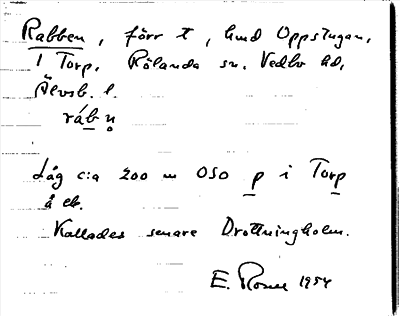 Rabben, förr t, und Oppstugan,
1 Torp, Rölanda sn. Vedbo hd,
Älvsb. l.
rábn̥
Låg c:a 200 m OSO p i Torp
å ek.
Kallades senare Drottningholm.
E. Rosell 1954